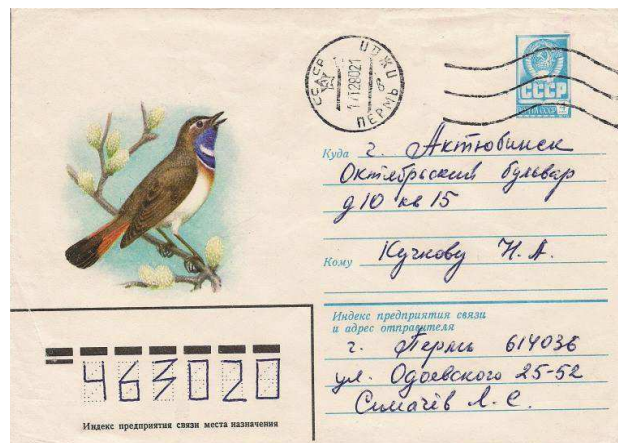 СССР
ПЕРМЬ
СССР
Куда г. Актюбинск
Октябрьский бульвар
д 10 кв 15
Кому Кучкову Н. А.
Индекс предприятия связи
и адрес отправителя
г. Пермь 614036
ул. Одоевского 25-52
Симачёв Л. С.
463020
Индекс предприятия связи места назначения